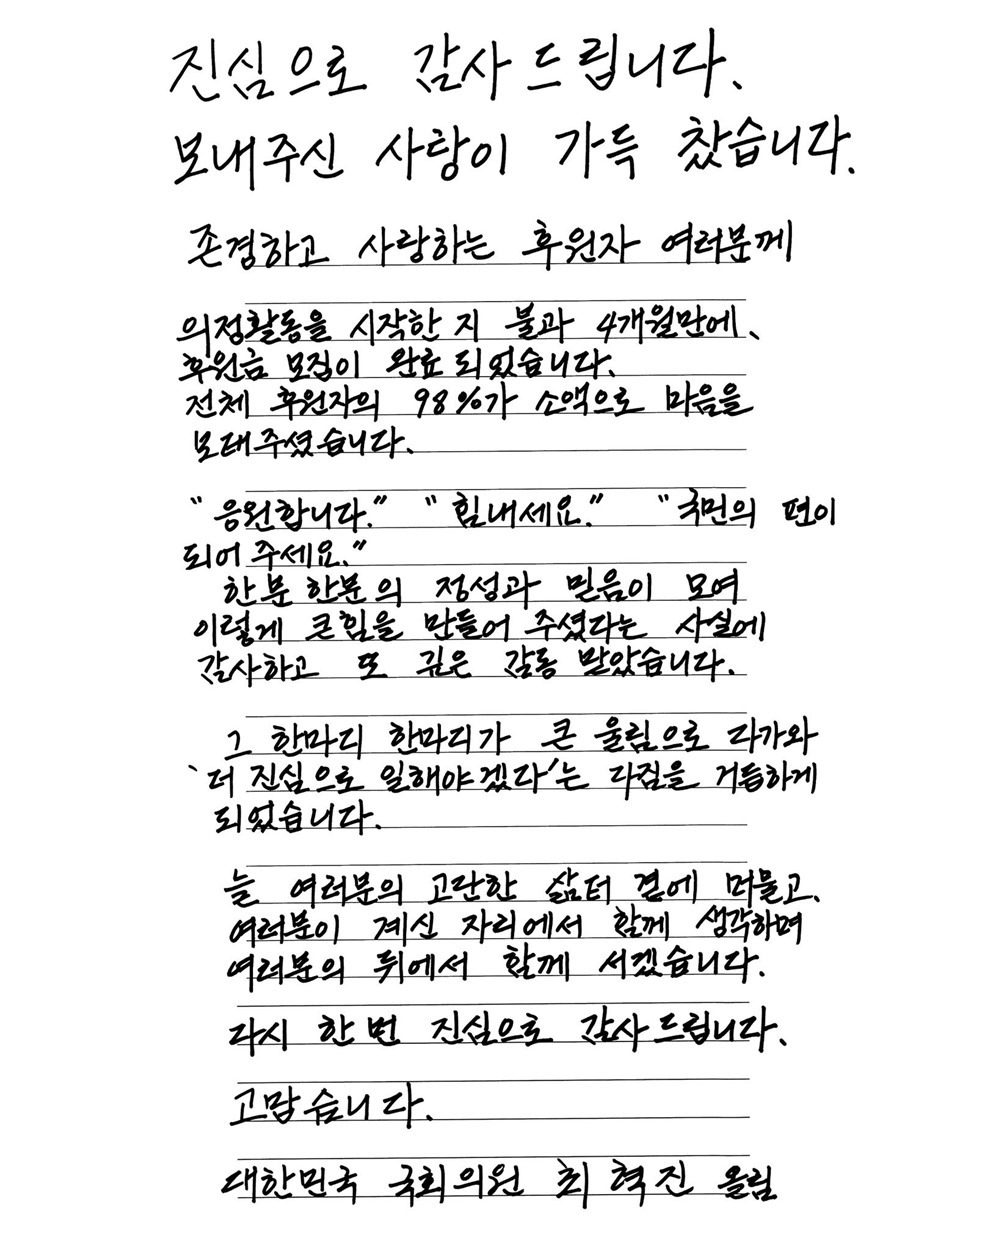 진심으로 감사드립니다.
보내주신 사랑이 가득 찼습니다.
존경하고 사랑하는 후원자 여러분께
의정활동을 시작한 지 불과 4개월만에,
후원금 모집이 완료되었습니다.
전체 후원자의 98%가 소액으로 마음을
보태주셨습니다.
"응원합니다." "힘내세요." "국민의 편이
되어 주세요."
한분 한분의 정성과 믿음이 모여
이렇게 큰힘을 만들어 주셨다는 사실에
감사하고 또 깊은 감동 받았습니다.
그 한마디 한마디가 큰 울림으로 다가와
'더 진심으로 일해야겠다'는 다짐을 거듭하게
되었습니다.
늘 여러분의 고단한 삶터 곁에 머물고,
여러분이 계신 자리에서 함께 생각하며
여러분의 뒤에서 함께 서겠습니다.
다시 한 번 진심으로 감사드립니다.
고맙습니다.
대한민국 국회의원 최혁진 올림